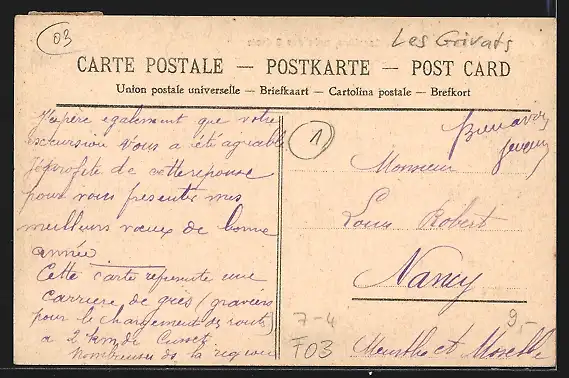 03
Les Grivats
CARTE POSTALE — POSTKARTE — POST CARD
Union postale universelle — Briefkaart — Cartolina postale — Brefkort
J'espère également que votre
excursion vous a été agréable
Je profite de cette reponse
pour vous presenter mes
meilleurs vœux de bonne
année
Cette carte represente une
carriere de grès (graviers
pour le chargement des routes)
a 2 km de Cusset
Nombreuses de la region
1
Monsieur
Louis Robert
Nancy
Meurthe et Moselle
7-4
F03
9,-